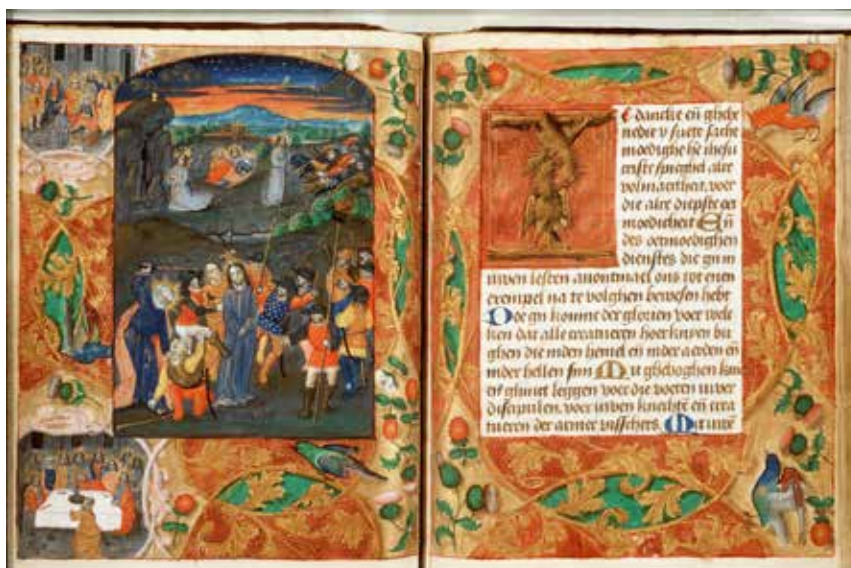 Ic dancke en̄ ghebe
nedie v sacte sacte
moedighe he ihesu
eerste spieghel alre
volmaectheit, voer
die alre diepste oet
moedicheit En̄
des oetmoedighen
dienstes die ghi in
uwen lesten auontmael ons tot enen
exempel na te volghen bewesen hebt
Doe ghi coninc der glorien voer wel
ken dat alle creatueren hoer knien bu
ghen die inden hemel en̄ inder aerden en̄
inder hellen sijn Mit gheboghen knie
en ghinct legghen voer die voeten uwer
discipulen, voer uwen knechtē en̄ crea
tueren der armer visschers. Mit uwe